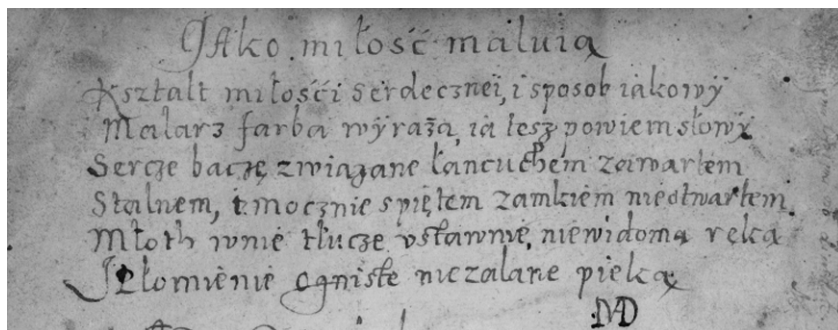 JAko miłość maluią
Kształt miłośći serdeczneÿ, i sposob iakowÿ
Malarz farba wÿraża, ia tesz powiem słowÿ
Sercze baczę związane łancuchem zawartem
Stalnem, i mocznie spiętem zamkiem nieotwartem.
Młoth wnie tłucze vstawnie, niewidomą ręką
J Płomienie ogniste niezalane pieką
MD